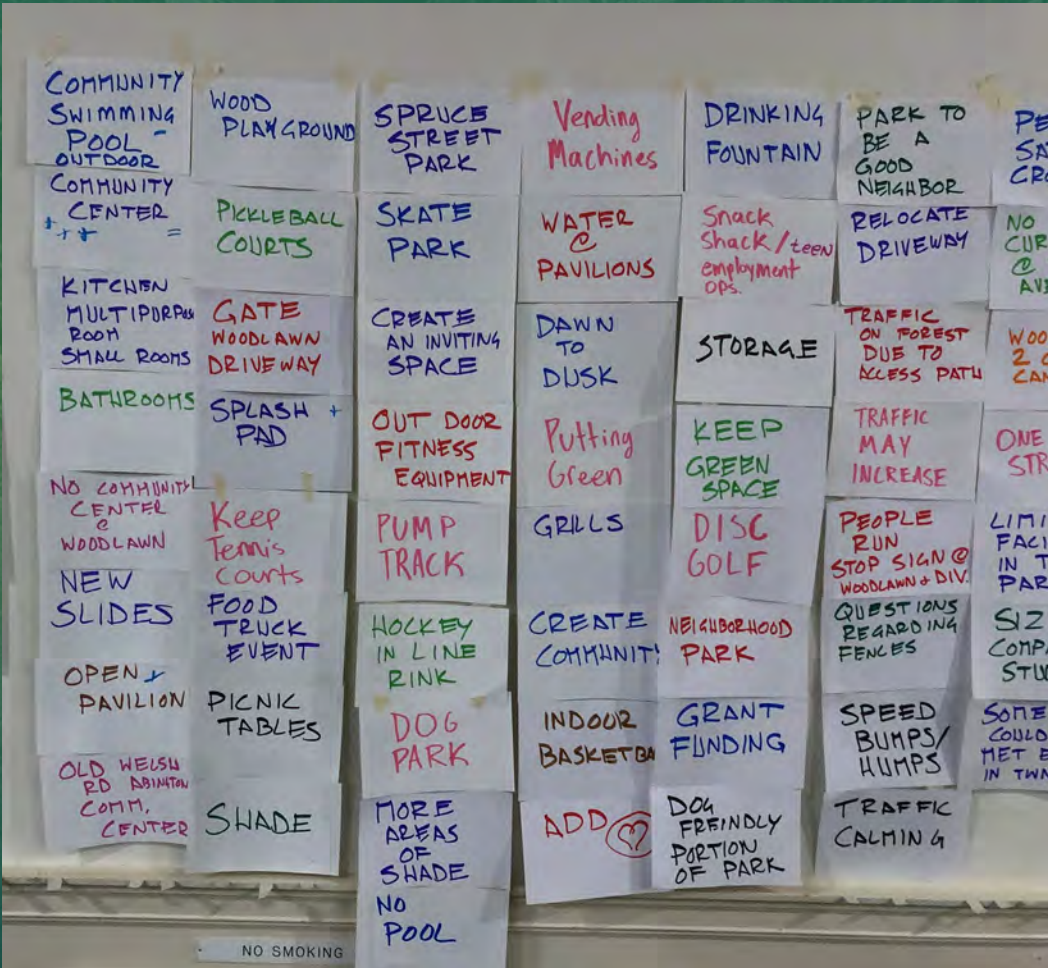 COMMUNITY
SWIMMING
POOL -
OUTDOOR
COMMUNITY
CENTER
KITCHEN
MULTIPURPOSE
ROOM
SMALL ROOMS
BATHROOMS
NO COMMUNITY
CENTER
@
WOODLAWN
NEW
SLIDES
OPEN +
PAVILION
OLD WELSH
RD ABINGTON
COMM.
CENTER
WOOD
PLAYGROUND
PICKLEBALL
COURTS
GATE
WOODLAWN
DRIVEWAY
SPLASH +
PAD
Keep
Tennis
Courts
FOOD
TRUCK
EVENT
PICNIC
TABLES
SHADE
SPRUCE
STREET
PARK
SKATE
PARK
CREATE
AN INVITING
SPACE
OUT DOOR
FITNESS
EQUIPMENT
PUMP
TRACK
HOCKEY
IN LINE
RINK
DOG
PARK
MORE
AREAS
OF
SHADE
NO
POOL
Vending
Machines
WATER
@
PAVILIONS
DAWN
TO
DUSK
Putting
Green
GRILLS
CREATE
COMMUNIT
INDOOR
BASKETBA
ADD
DRINKING
FOUNTAIN
Snack
Shack/teen
employment
OPS.
STORAGE
KEEP
GREEN
SPACE
DISC
GOLF
NEIGHBORHOOD
PARK
GRANT
FUNDING
DOG
FREINDLY
PORTION
OF PARK
PARK TO
BE A
GOOD
NEIGHBOR
RELOCATE
DRIVEWAY
TRAFFIC
ON FOREST
DUE TO
ACCESS PATH
TRAFFIC
MAY
INCREASE
PEOPLE
RUN
STOP SIGN @
WOODLAWN + DIV.
QUESTIONS
REGARDING
FENCES
SPEED
BUMPS/
HUMPS
TRAFFIC
CALMING
PE
SA
CRO
NO
CUR
@
AVE
WOO
2 
CAN
ONE
STR
LIMI
FACI
IN T
PAR
SIZ
COMPA
STUD
SOME
COULD
MET E
IN TWN
NO SMOKING